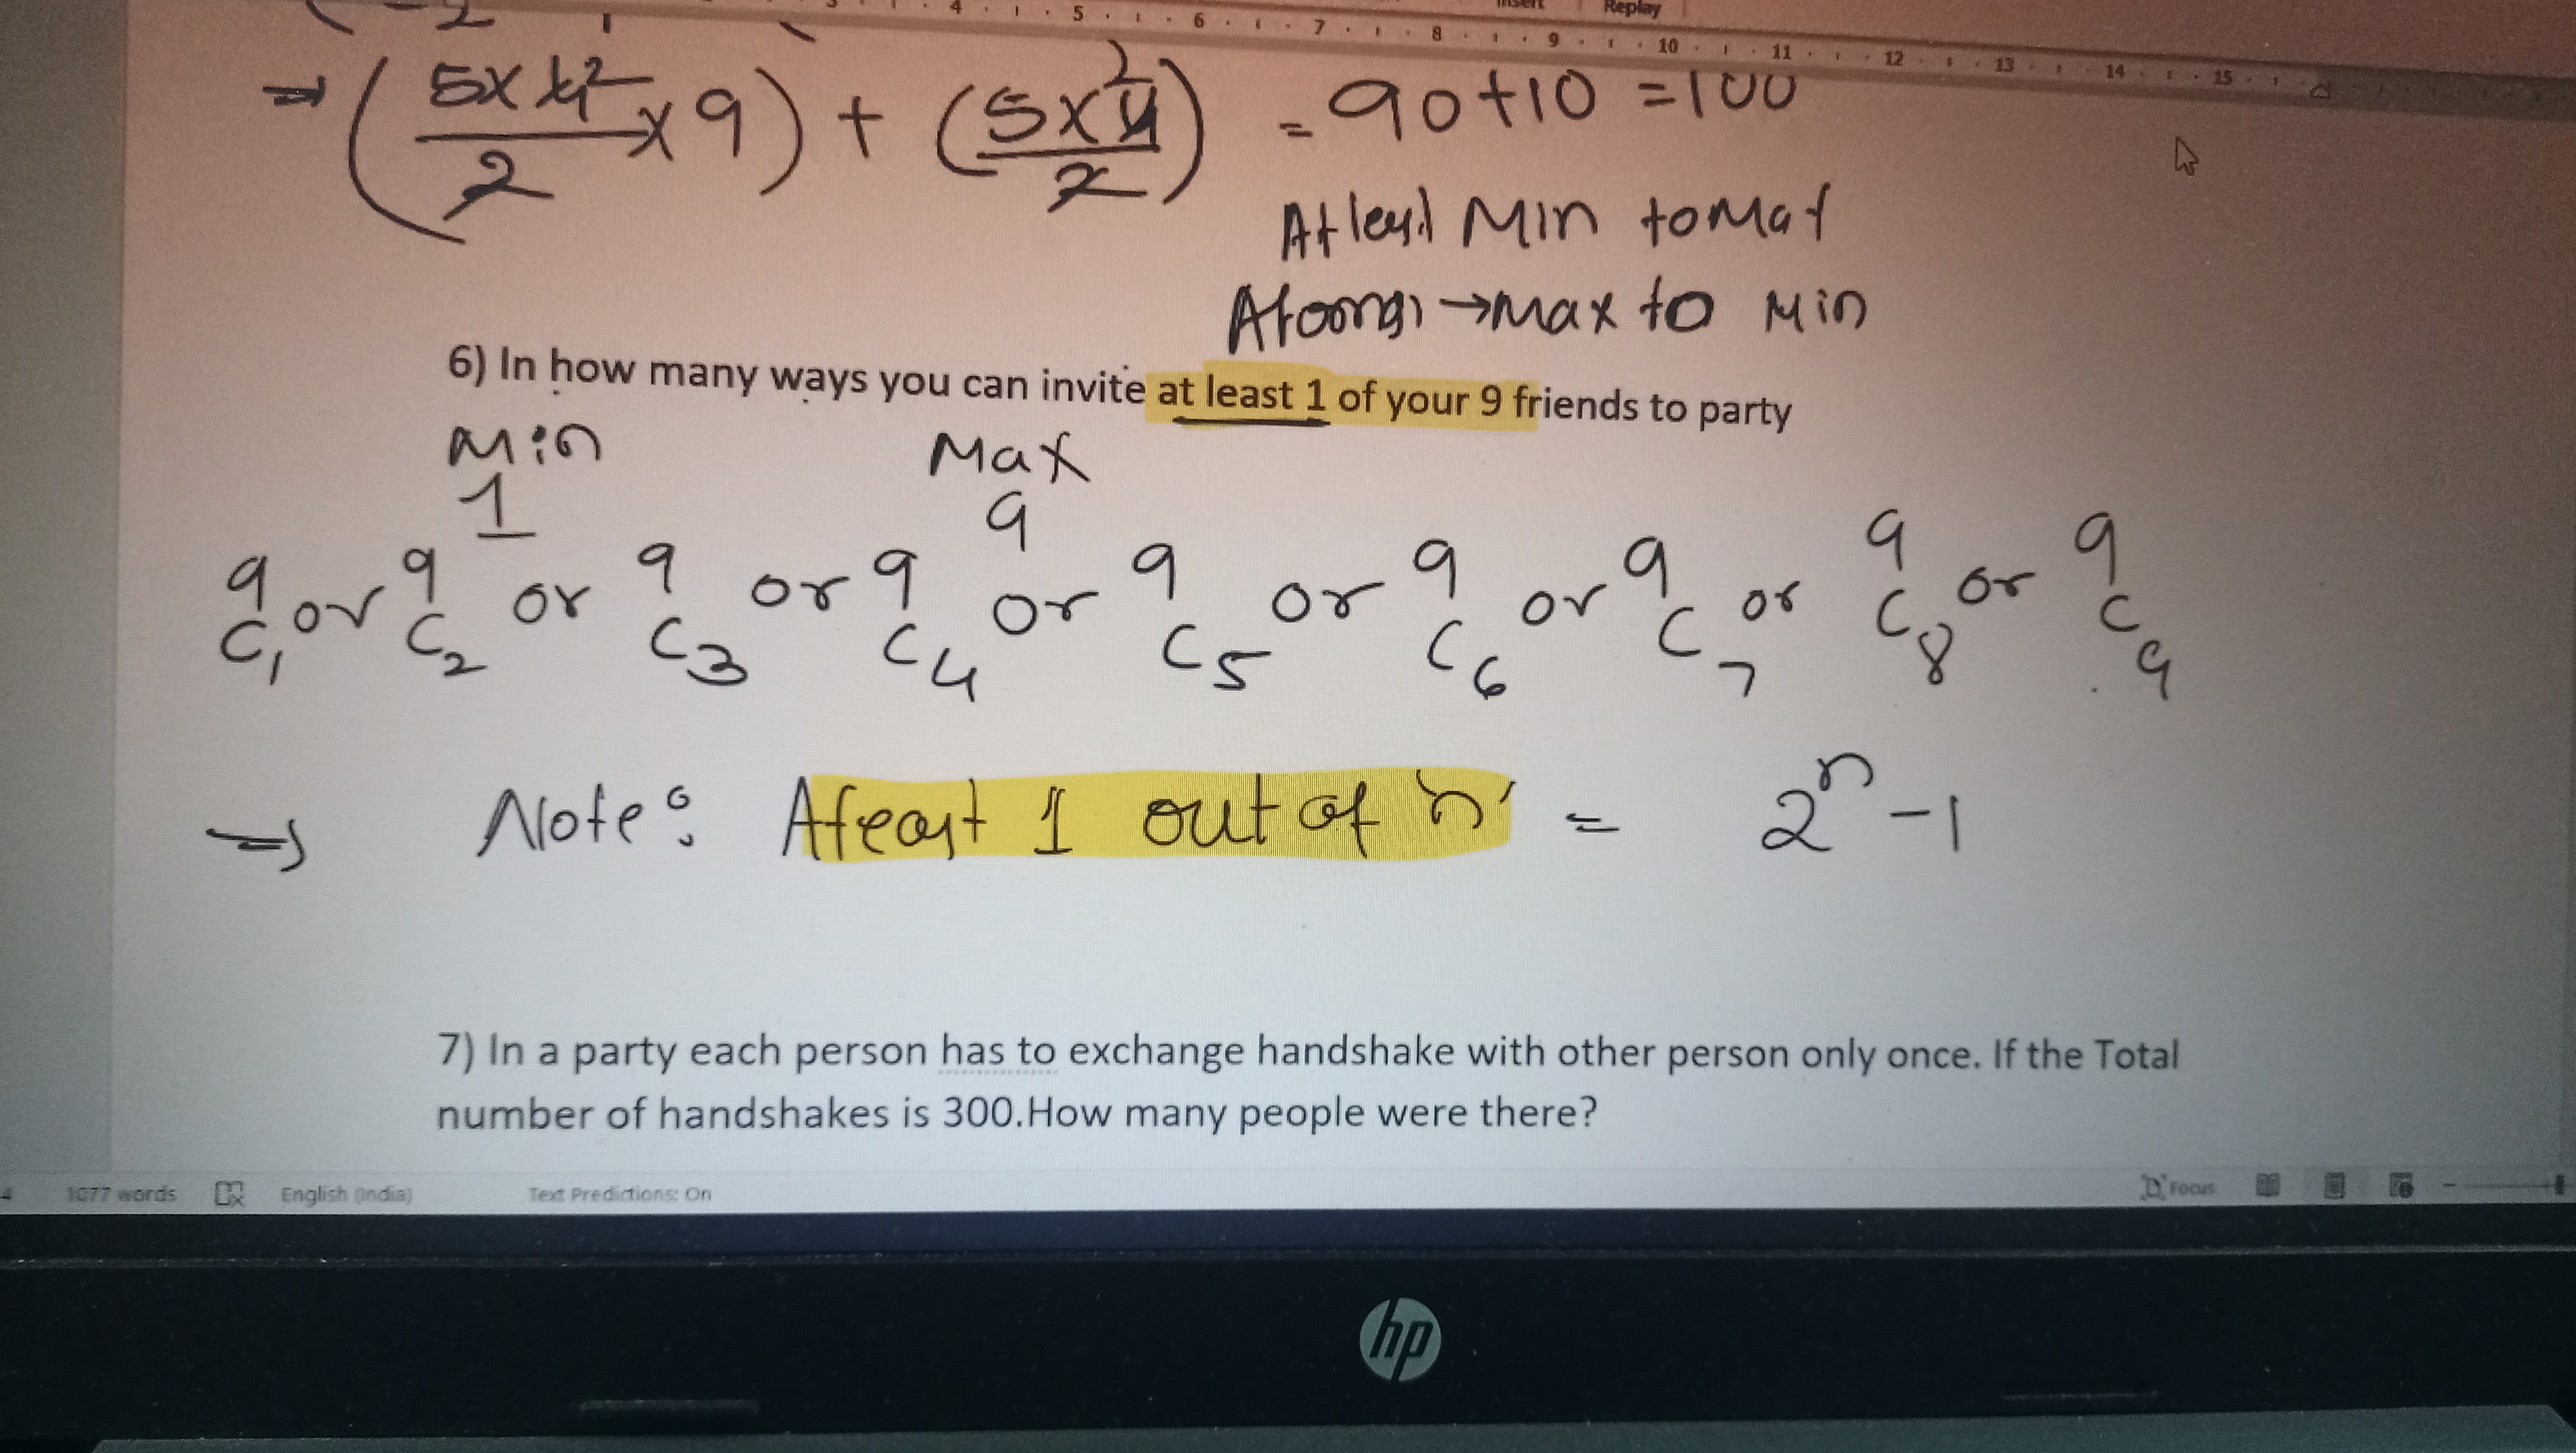 ⇒ (5x4²/2 x 9) + (5x4²/2) = 90+10 =100
Atleast Min to Max
Atomost → max to Min
6) In how many ways you can invite at least 1 of your 9 friends to party
Min Max
1 9
9C1 or 9C2 or 9C3 or 9C4 or 9C5 or 9C6 or 9C7 or 9C8 or 9C9
⇒ Note: Atleast 1 out of 'n' = 2ⁿ-1
7) In a party each person has to exchange handshake with other person only once. If the Total
number of handshakes is 300.How many people were there?
1077 words English (India) Text Predictions: On Focus
hp